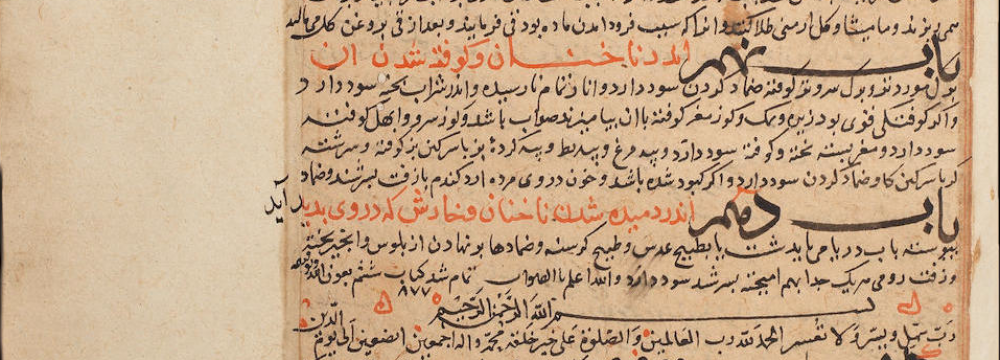 همی ریزند و مامیثا و کل ارمنی طلا کنند و انرا که سبب فرود امدن ماده بود قی فرمایند و بعد از قی بروغن کل می مالند
باب نهم اندر ناخنان و کوفته شدن ان
برک مورد تر و برک سرو تر کوفته ضماد کردن سود دارد و انار تمام نارسیده و اندر شراب پخته سود دارد
و اکر کوفتکی قوی بود زیره و نمک و کوز مغز کوفته با ان بیامیزند صواب باشد و کوز سرو و ابهل کوفته
سود دارد و مغز پسته پخته و کوفته سود دارد و پیه مرغ و پیه بط و پیه کرده بز با سرکین بز کوفته و سرشته
با سرکین کاو ضماد کردن سود دارد و اکر کبود شده باشد و خون در وی مرده ارد کندم با زفت بسرشند و ضماد
باب دهم اندر دمیده شدن ناخنان و خارش که در وی پدید آید
پیوسته باب دریا می باید شست یا بطبیخ عدس و طبیخ کرسنه و ضمادها بر نهادن از بلوس و انجیر پخته
و زفت رومی هر یک جدا بهم امیخته بسرشد سود دارد والله اعلم بالصواب تمام شد کتاب ششم بعون الله و توفیقه
٨٧٧
بسم الله الرحمن الرحیم
رب تمم و یسر و لا تعسر الحمد لله رب العالمین و الصلوة علی خیر خلقه محمد و اله اجمعین الی یوم الدین